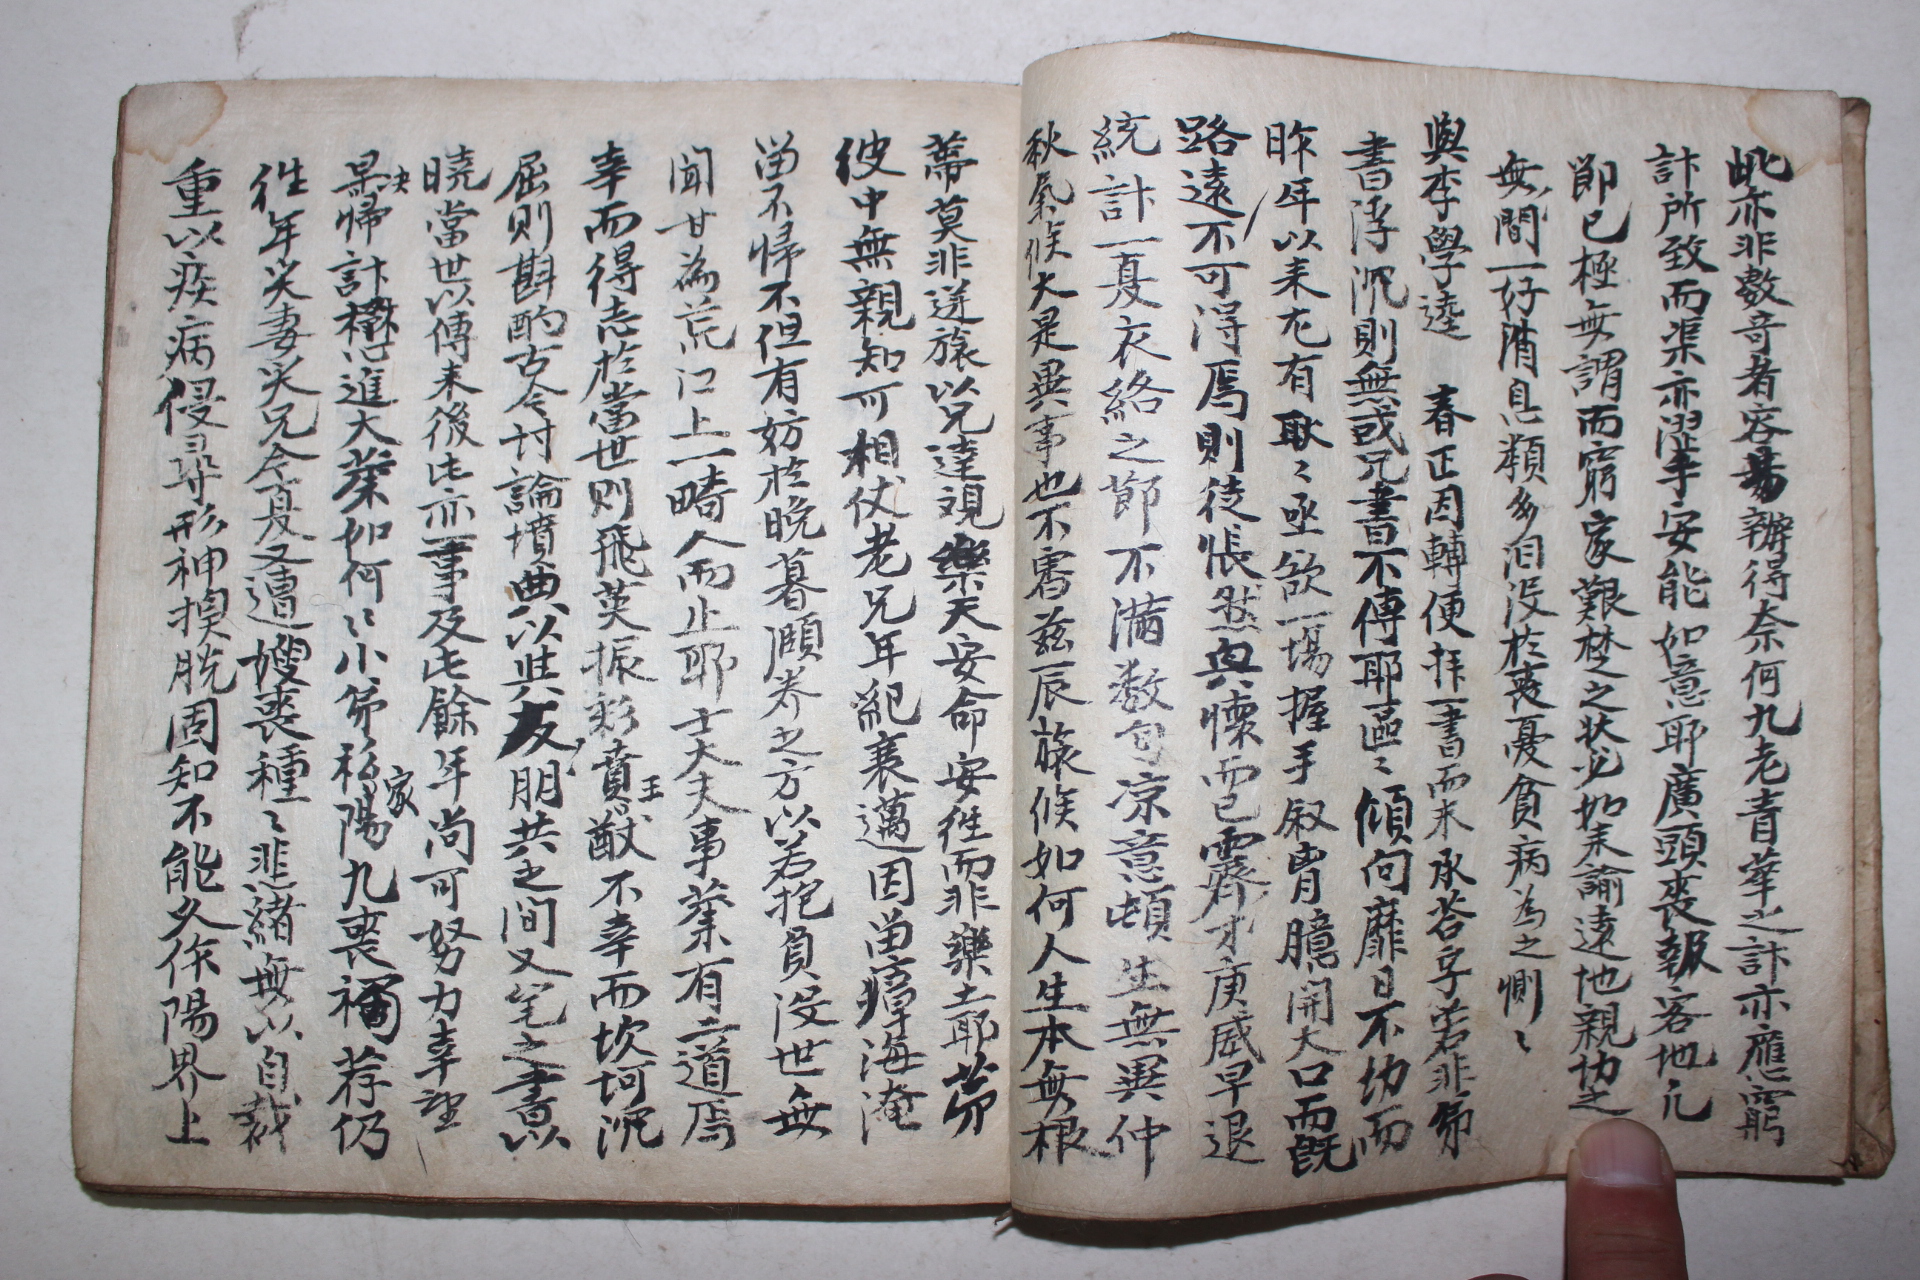 此亦非數奇者容易辦得奈何九老青華之計亦應窮
計所致而渠亦澀手安能如意耶廣頭喪報客地尤
節已極無謂而窮家艱楚之狀必如来諭遠地親切之
無間一好消息類多汨没於喪憂貧病為之惻〻
與李學逵 春正因轉便拜一書而未承答字若非弟
書浮沉則無或兄書不傳耶區〻傾向靡日不切而
昨年以来尤有耿〻亟欲一場握手叙胷臆開大口而旣
路遠不可得焉則徒悵然興懷而已霽才庚威早退
統計一夏衣絡之節不滿數旬凉意頓生無異仲
秋氣候大是異事也不審玆辰旅候如何人生本無根
蔕莫非逆旅以兄達觀樂天安命安往而非樂土耶
彼中無親知可相仗老兄年紀衰邁因留瘴海淹
留不歸不但有妨於晚暮頤養之方以若抱負没世無
聞甘為荒江上一畸人而止耶士大夫事業有二道焉
幸而得志於當世則飛英振彩賁王猷不幸而坎坷沉
屈則斟酌古今討論墳典以與友朋共之間又筆之書以
曉當世以傳来後此亦一事及此餘年尚可努力幸望
決㝎歸計懋進大業如何〻小弟私家陽九喪禍荐仍
徃年哭妻哭兄今夏又遭嫂喪種〻悲緒無以自裁
重以疾病侵尋形神換脫固知不能久作陽界上